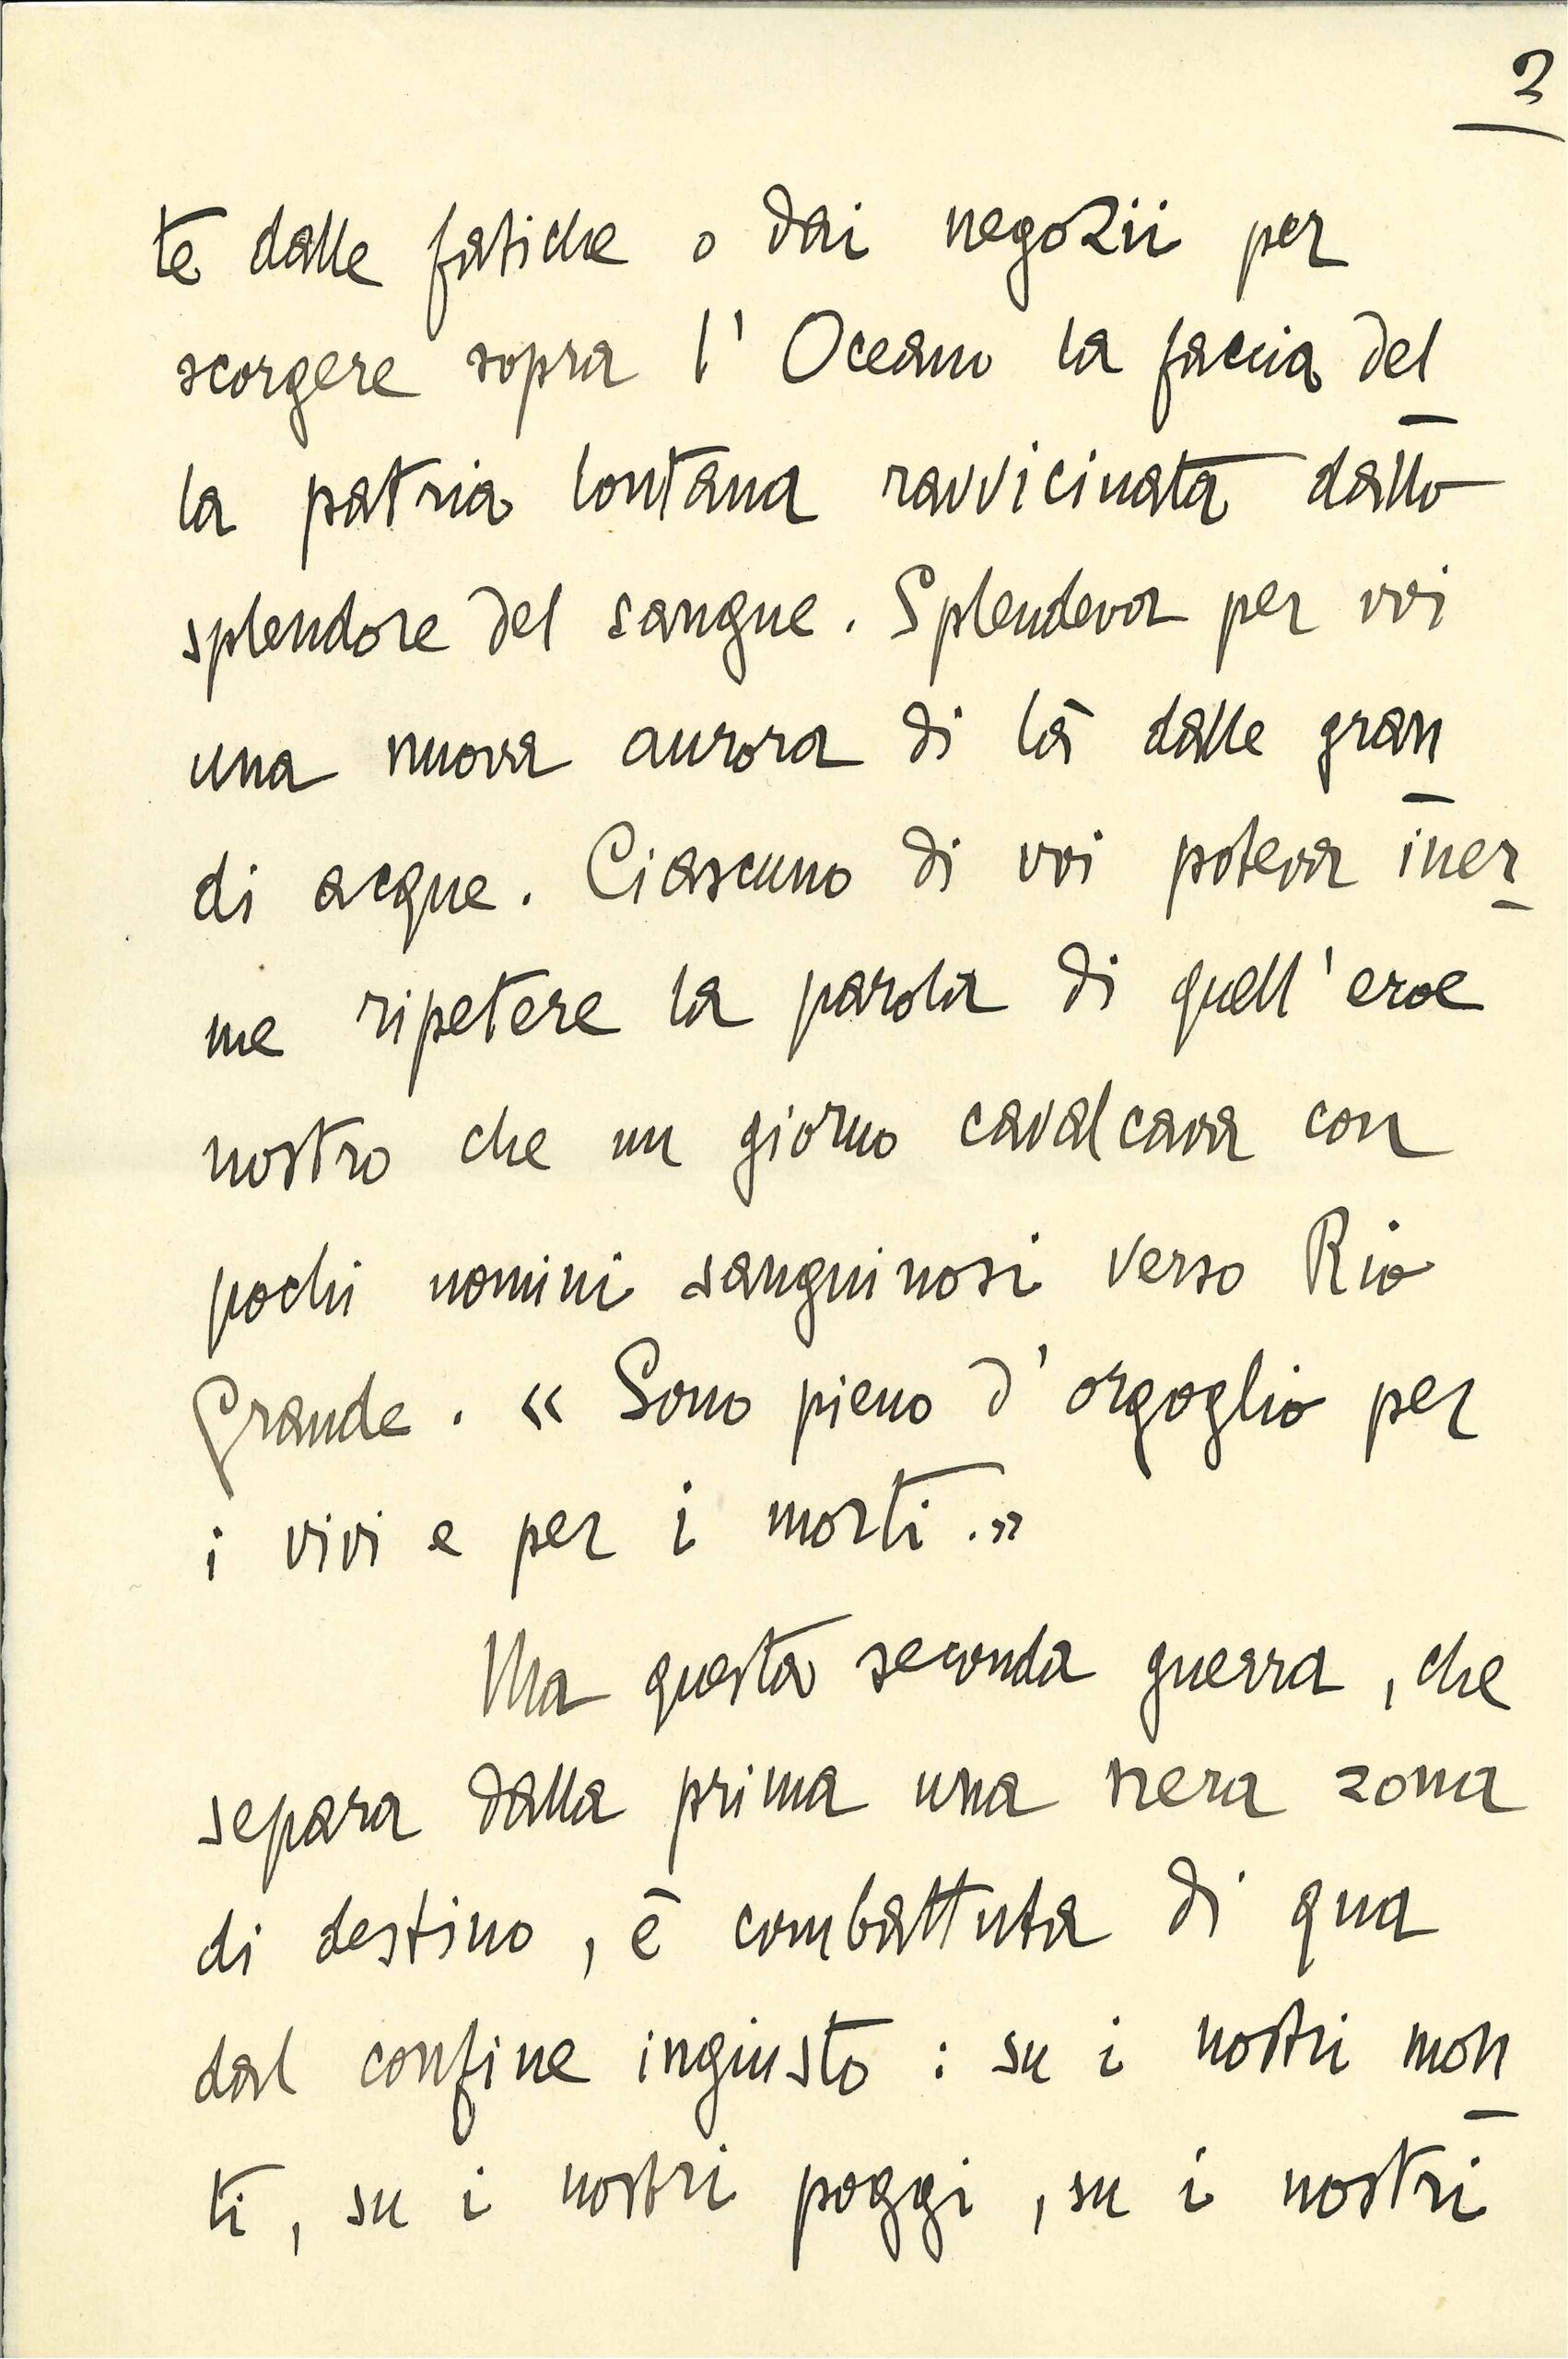 2
te dalle fatiche o dai negozii per
scorgere sopra l'Oceano la faccia del
la patria lontana ravvicinata dallo
splendore del sangue. Splendeva per voi
una nuova aurora di là dalle gran
di acque. Ciascuno di voi poteva iner
me ripetere la parola di quell'eroe
nostro che un giorno cavalcava con
pochi uomini sanguinosi verso Rio
Grande. « Sono pieno d'orgoglio per
i vivi e per i morti.»
Ma questa seconda guerra, che
separa dalla prima una nera zona
di destino, è combattuta di qua
dal confine ingiusto: su i nostri mon
ti, su i nostri poggi, su i nostri